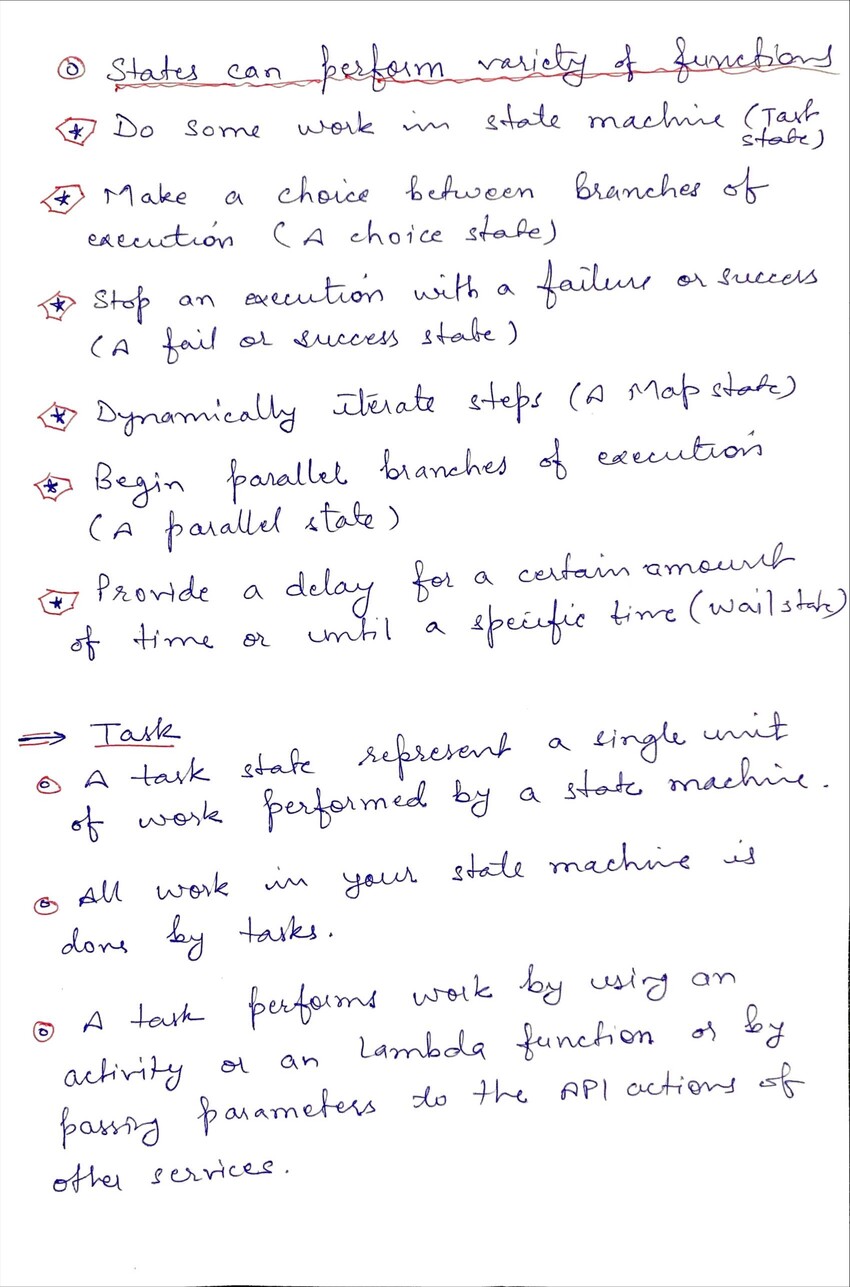 States can perform variety of functions
Do some work in state machine (Task
state)
Make a choice between branches of
execution (A choice state)
Stop an execution with a failure or success
(A fail or success state)
Dynamically iterate steps (A Map state)
Begin parallel branches of execution
(A parallel state)
Provide a delay for a certain amount
of time or until a specific time (wait state)
⇒ Task
A task state represent a single unit
of work performed by a state machine.
All work in your state machine is
done by tasks.
A task performs work by using an
activity or an Lambda function or by
passing parameters to the API actions of
other services.